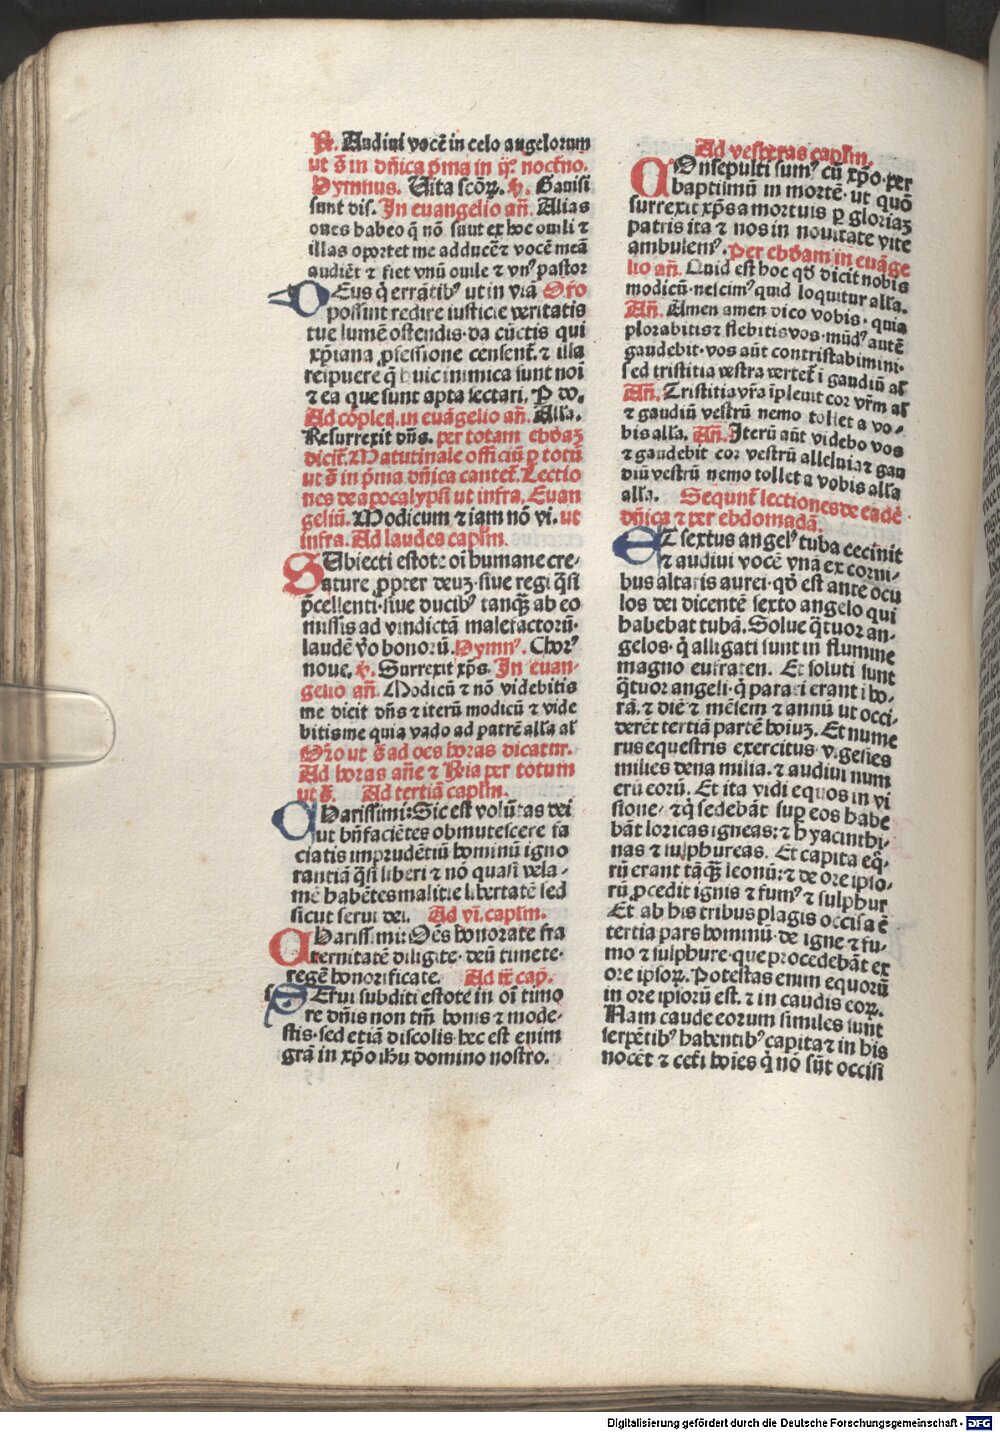 R̷. Audiui vocē in celo angelorum
ut s̄ in dn̄ica p̄ma in q̊. noct̄no.
Hymnus. Vita sc̄oꝝ. v̷. Gauisi
sunt dis. In euangelio an̄. Alias
oues habeo q̄ nō sunt ex hoc ouili ⁊
illas oportet me adducē⁊ vocē meā
audiēt ⁊ fiet vnū ouile ⁊ vnꝰ pastor
DEus q̇ errātibꝰ ut in viā Oro̅
possint redire iusticie veritatis
tue lumē ostendis. da cūctis qui
xp̄iana ꝓfessione censent̄. ⁊ illa
respuere q̄ huic inimica sunt noī
⁊ ea que sunt apta sectari. P do.
Ad cōplet. in euāgelio an̄. Alla.
Resurrexit dn̄s. per totam ebdaꝫ
dicit̄. Matutinale officiū ꝑ totū
ut s̄ in p̄ma dn̄ica cantet̄. Lectio
nes de apocalypsi ut infra. Euan
geliū. Modicum ⁊ iam nō vi. ut
infra. Ad laudes caplm̄.
SUbiecti estote oī humane cre-
ature ꝓpter deuꝫ. siue regi q̄si
p̄cellenti. siue ducibꝰ tanqꝫ ab eo
missis ad vindictā malefactorū.
laudē v̊o bonorū. Hymnꝰ. Chorꝰ
noue. v̷. Surrexit xp̄s. In euan-
gelio an̄. Modicū ⁊ nō videbitis
me dicit dn̄s ⁊ iterū modicū ⁊ vide
bitis me quia vado ad patrē alla al
Oro̅ ut s̄ ad oēs horas dicatur.
Ad horas an̄e ⁊ R̷ria per totum
ut s̄. Ad tertiā caplm̄.
CHarissimi: Sic est volūtas dei
ut bn̄faciētes obmutescere fa
ciatis imprudētiū hominū igno
rantiā q̄si liberi ⁊ nō quasi vela-
mē habētes malitie libertatē sed
sicut serui dei. Ad vi. caplm̄.
CHarissimi: Oēs honorate fra
ternitatē diligite. deū timete.
regē honorificate. Ad ix̄ cap.
SErui subditi estote in oī timo
re dn̄is non tm̄ bonis ⁊ mode-
stis. sed etiā discolis. hec est enim
grā in xp̄o ihū domino nostro.
Ad vesperas caplm̄.
COnsepulti sumꝰ cū xp̄o. per
baptismū in mortē. ut quō
surrexit xp̄s a mortuis ꝑ gloriaꝫ
patris ita ⁊ nos in nouitate vite
ambulemꝰ. Per ebdam in euāge
lio an̄. Quid est hoc qd̄ dicit nobis
modicū. nescimꝰ quid loquitur alla.
An̄. Amen amen dico vobis. quia
plorabitis⁊ flebitis vos. mūdꝰ autē
gaudebit. vos aūt contristabimini.
sed tristitia vestra vertet̄ i gaudiū al
An̄. Tristitia vr̄a īpleuit cor vr̄m al
⁊ gaudiū vestrū nemo tollet a vo-
bis alla. An̄. Iterū aūt videbo vos
⁊ gaudebit cor vestrū alleluia ⁊ gau
diū vestrū nemo tollet a vobis alla
alla. Sequunt̄ lectiones de eadē
dn̄ica ⁊ per ebdomadā.
ET sextus angelꝰ tuba cecinit
⁊ audiui vocē vnā ex corni-
bus altaris aurei. qd̄ est ante ocu
los dei dicentē sexto angelo qui
habebat tubā. Solue q̄tuor an-
gelos. q̇ alligati sunt in flumine
magno eufraten. Et soluti sunt
q̄tuor angeli. q̇ parati erant i ho-
rā. ⁊ diē ⁊ mēsem ⁊ annū ut occi-
derēt tertiā partē hoiuꝫ. Et nume
rus equestris exercitus. vigesies
milies dena milia. ⁊ audiui num
erū eorū. Et ita vidi equos in vi
sione. ⁊ q̇ sedebāt suꝑ eos habe
bāt loricas igneas: ⁊ hyacinthi-
nas ⁊ sulphureas. Et capita eq̊-
rū erant tāqꝫ leonū: ⁊ de ore ipso-
rū ꝓcedit ignis ⁊ fumꝰ ⁊ sulphur
Et ab his tribus plagis occisa ē
tertia pars hominū. de igne ⁊ fu-
mo ⁊ sulphure. que procedebāt ex
ore ipsoꝝ. Potestas enim equorū
in ore ipsorū est. ⁊ in caudis eoꝝ.
Nam caude eorum similes sunt
serpētibꝰ habentibꝰ capita⁊ in his
nocēt ⁊ cet̄i hoīes q̇ nō sūt occisi
Digitalisierung gefördert durch die Deutsche Forschungsgemeinschaft - DFG